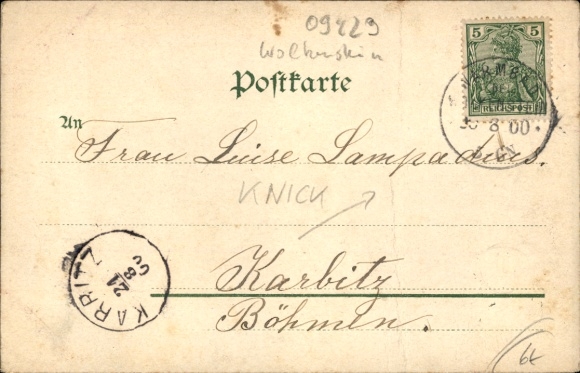 09429
Wolkenstein
Postkarte
5
REICHSPOST
8 00
An
Frau Luise Lampadius.
KNICK
KARBITZ
21
8
00
Karbitz
Böhmen.
6€